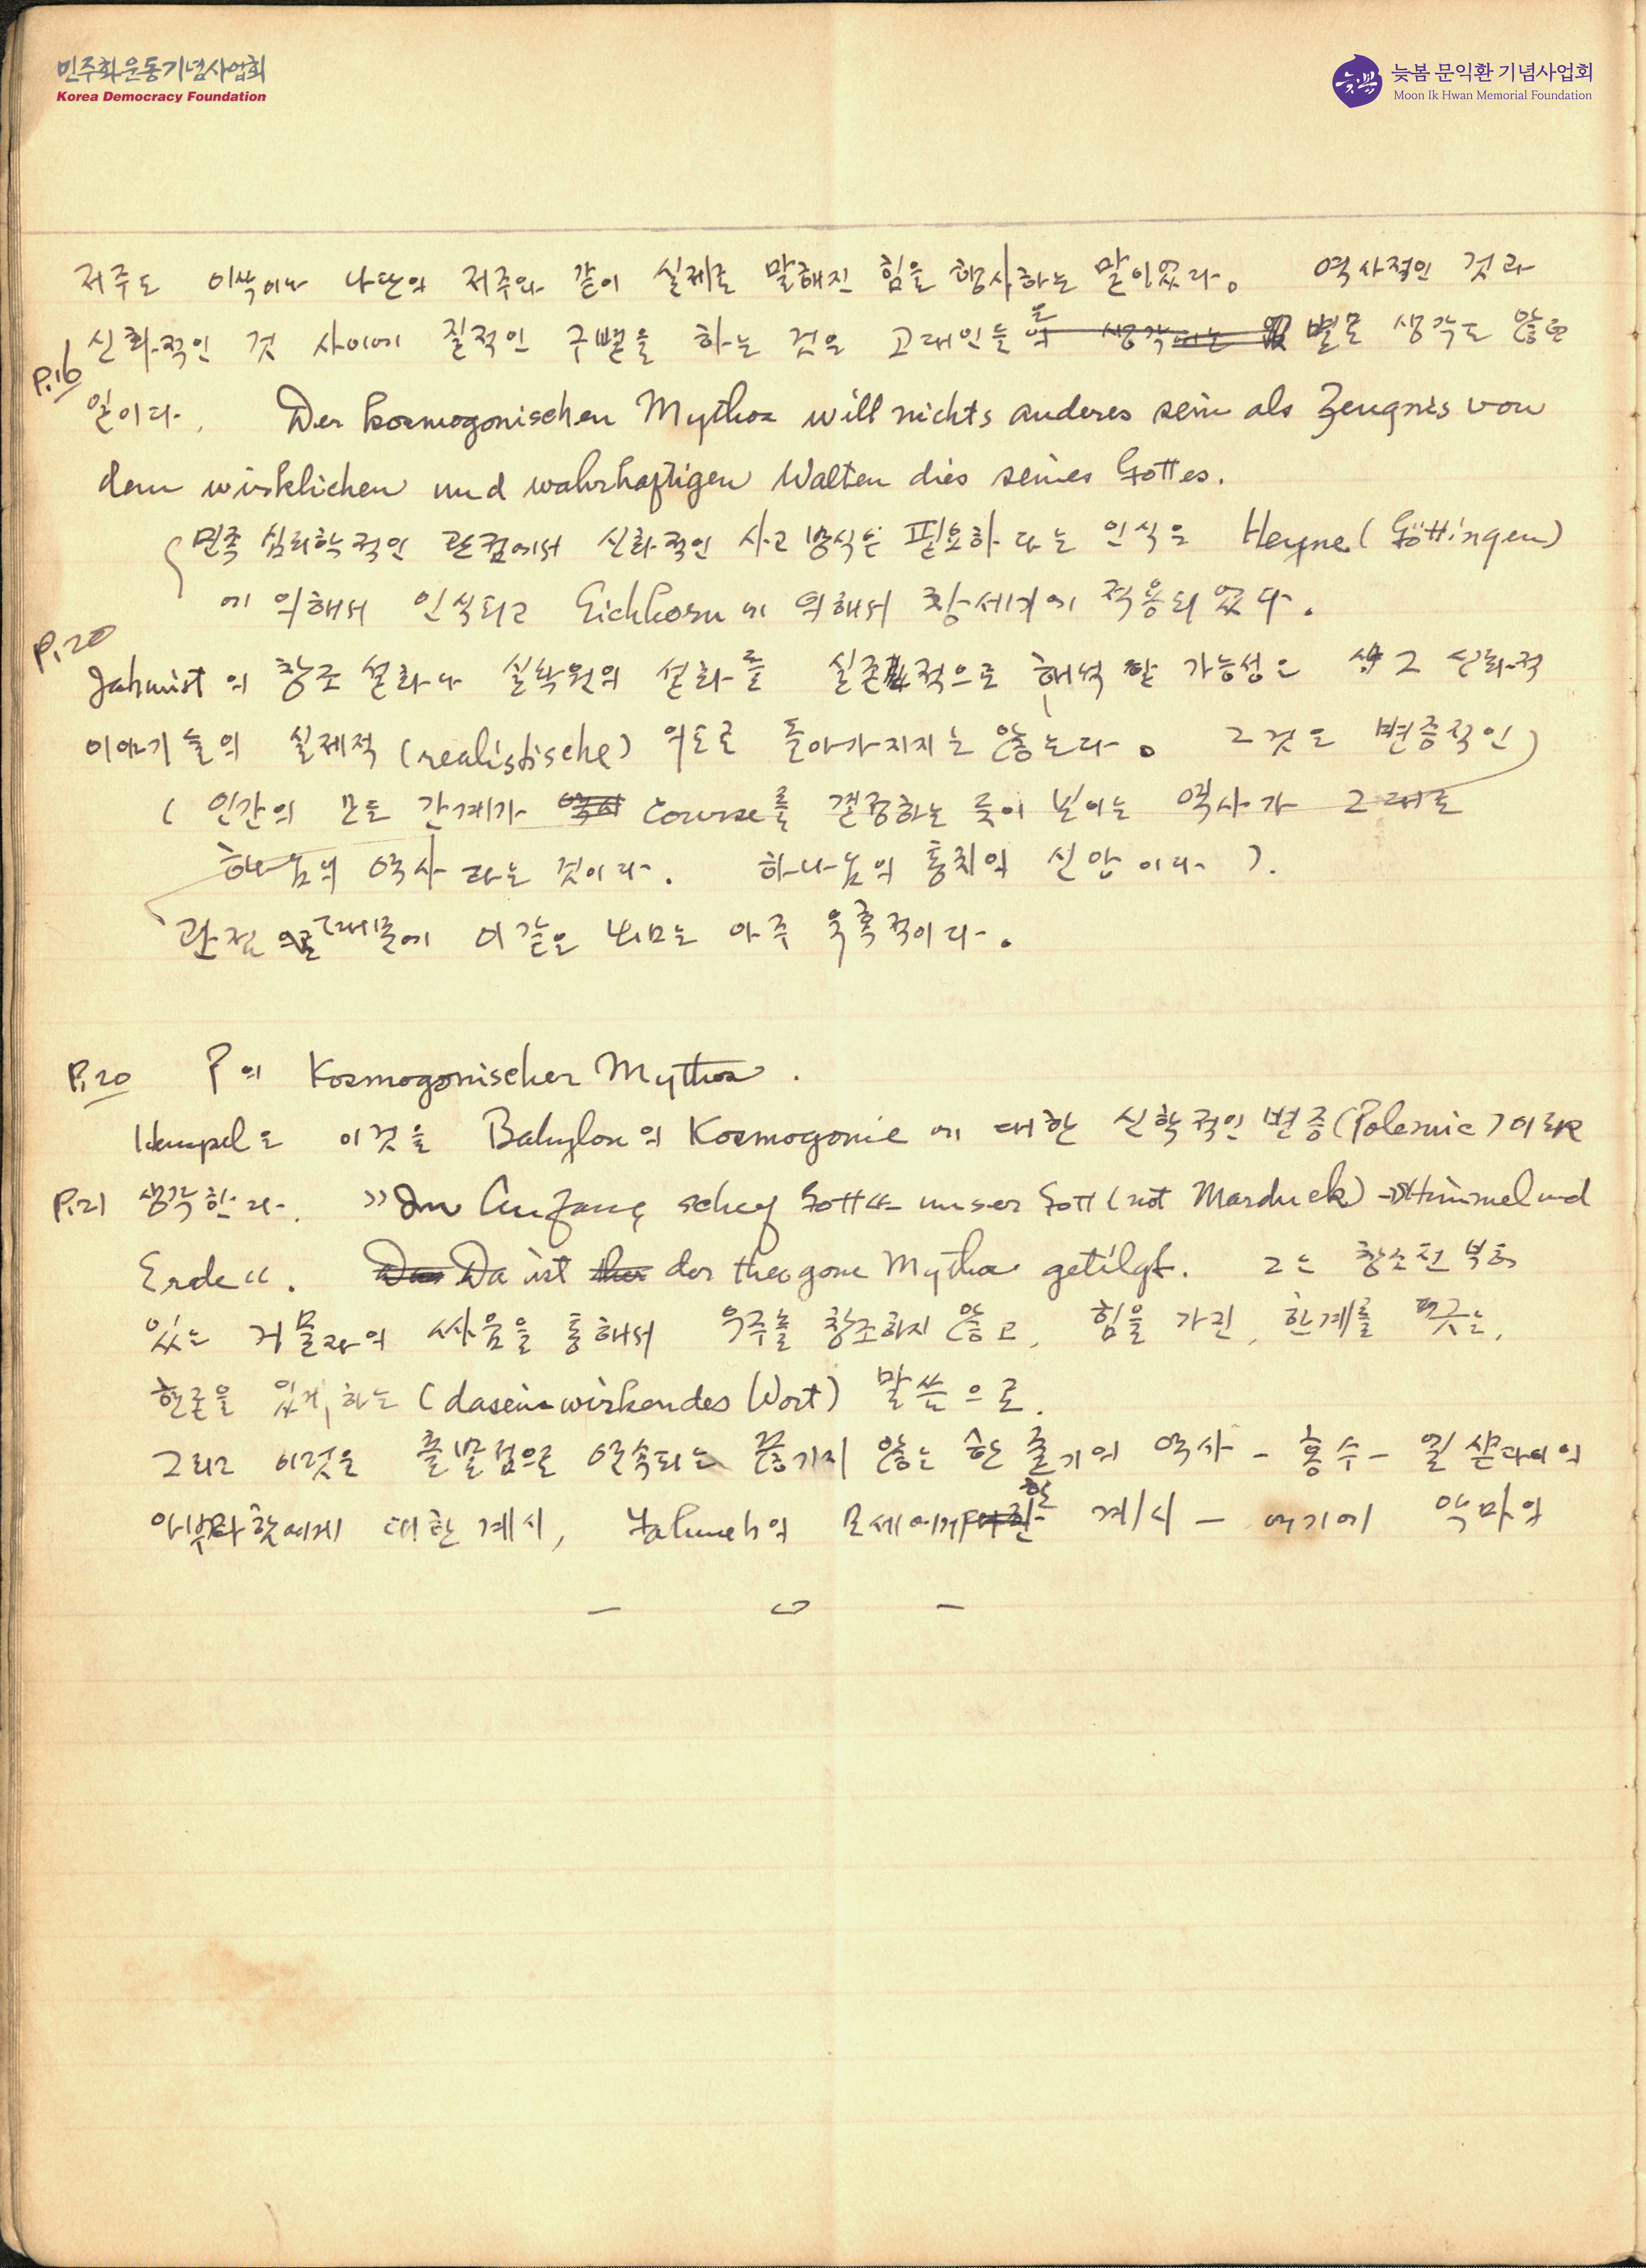 민주화운동기념사업회
Korea Democracy Foundation
늦봄 문익환 기념사업회
Moon Ik Hwan Memorial Foundation
저주도 이삭이나 나단의 저주와 같이 실제로 말해진 힘을 행사하는 말이었다. 역사적인 것과
신화적인 것 사이에 질적인 구별을 하는 것은 고대인들은 별로 생각도 않은
P.16
일이다. Der kosmogonischen Mythos will nichts anderes sein als Zeugnis von
dem wirklichen und wahrhaftigen Walten dies seines Gottes.
민족 심리학적인 관점에서 신화적인 사고 방식은 필요하다는 인식은 Heyne (Göttingen)
에 의해서 인식되고 Eichhorn에 의해서 창세기에 적용되었다.
P.20
Jahwist의 창조 설화나 실락원의 설화를 실존적으로 해석할 가능성은 그 신화적
이야기들의 실제적 (realistische) 의도로 돌아가지지는 않는다. 그것도 변증적인
(인간의 모든 간계가 course를 결정하는 듯이 보이는 역사가 그대로
하나님의 역사라는 것이다. 하나님의 통치의 신앙이다).
관점 때문에 이같은 는 아주 유혹적이다.
P.20 P의 Kosmogonischer Mythos.
Hempel은 이것을 Babylon의 Kosmogonie에 대한 신학적인 변증(Polemic)이라
P.21 생각한다. »Im Anfang schuf Gott« unser Gott (not Marduck) →»Himmel und
Erde«. Da ist der theogone Mythos getilgt. 그는 창조전부터
있는 거물과의 싸움을 통해서 우주를 창조하지 않고, 힘을 가진, 한계를 긋는,
현존을 있게 하는 (daseinwirkendes Wort) 말씀으로.
그리고 이것은 출발점으로 연속되는 끊기지 않는 한 줄기의 역사 – 홍수 – 엘 샫다이의
아브라함에게 대한 계시, Yahweh의 모세에게 한 계시 – 여기에 악마의